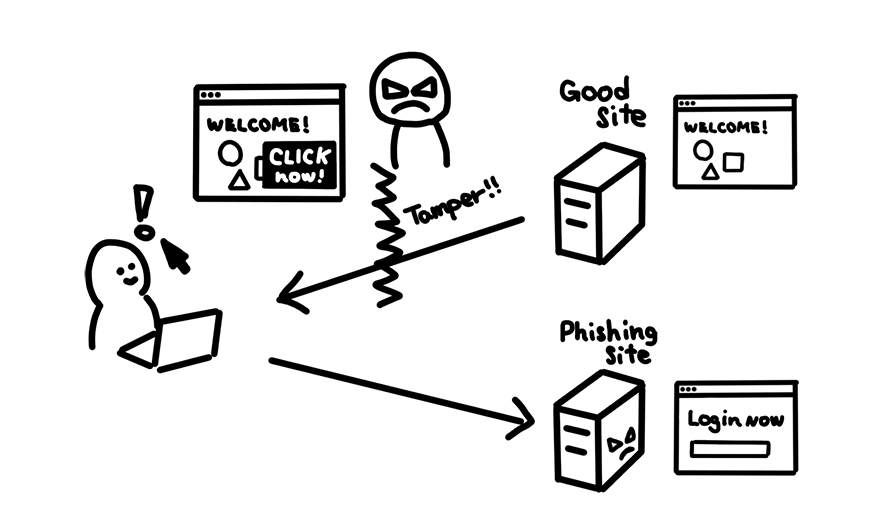 WELCOME!
CLICK
now!
Tamper!!
Good
site
WELCOME!
!
Phishing
site
Login now